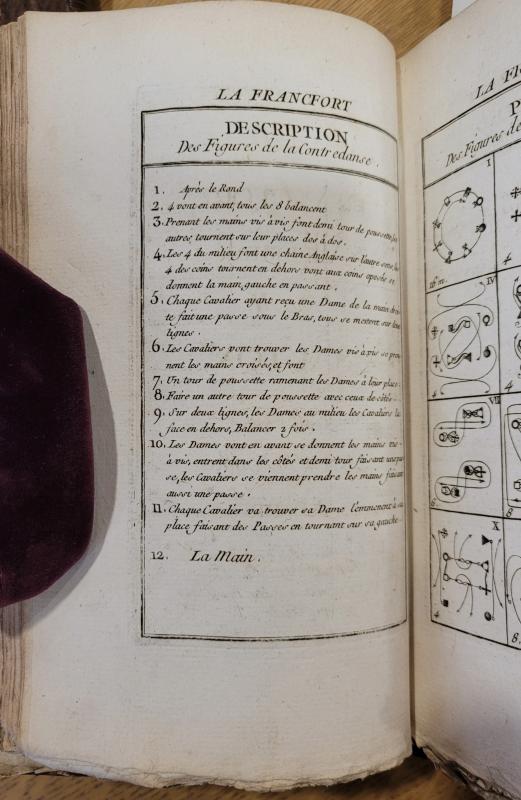 LA FRANCFORT
DESCRIPTION
Des Figures de la Contredanse.
1. Après le Rond
2. 4 vont en avant, tous les 8 balancent
3. Prenant les mains vis à vis font demi tour de poussette, les
autres tournent sur leur places dos à dos.
4. Les 4 du milieu font une chaine Anglaise sur l'autre sens, les
4 des coins tournent en dehors vont aux coins oposés et
donnent la main gauche en passant.
5. Chaque Cavalier ayant reçu une Dame de la main droi-
te fait une passe sous le Bras, tous se mettent sur deux
lignes.
6. Les Cavaliers vont trouver les Dames vis à vis se pren-
nent les mains croisés, et font
7. Un tour de poussette ramenant les Dames à leur place.
8. Faire un autre tour de poussette avec ceux de côtés.
9. Sur deux lignes, les Dames au milieu les Cavaliers la
face en dehors, Balancer 2 fois.
10. Les Dames vont en avant se donnent les mains vis-
à vis, entrent dans les côtés et demi tour faisant une pas-
se, les Cavaliers se viennent prendre les mains faisant
aussi une passe.
11. Chaque Cavalier va trouver sa Dame l'emmenent à sa
place faisant des Passes en tournant sur sa gauche
12. La Main.
LA FR
P
Des Figures de
I
IV
VII
X
4
8